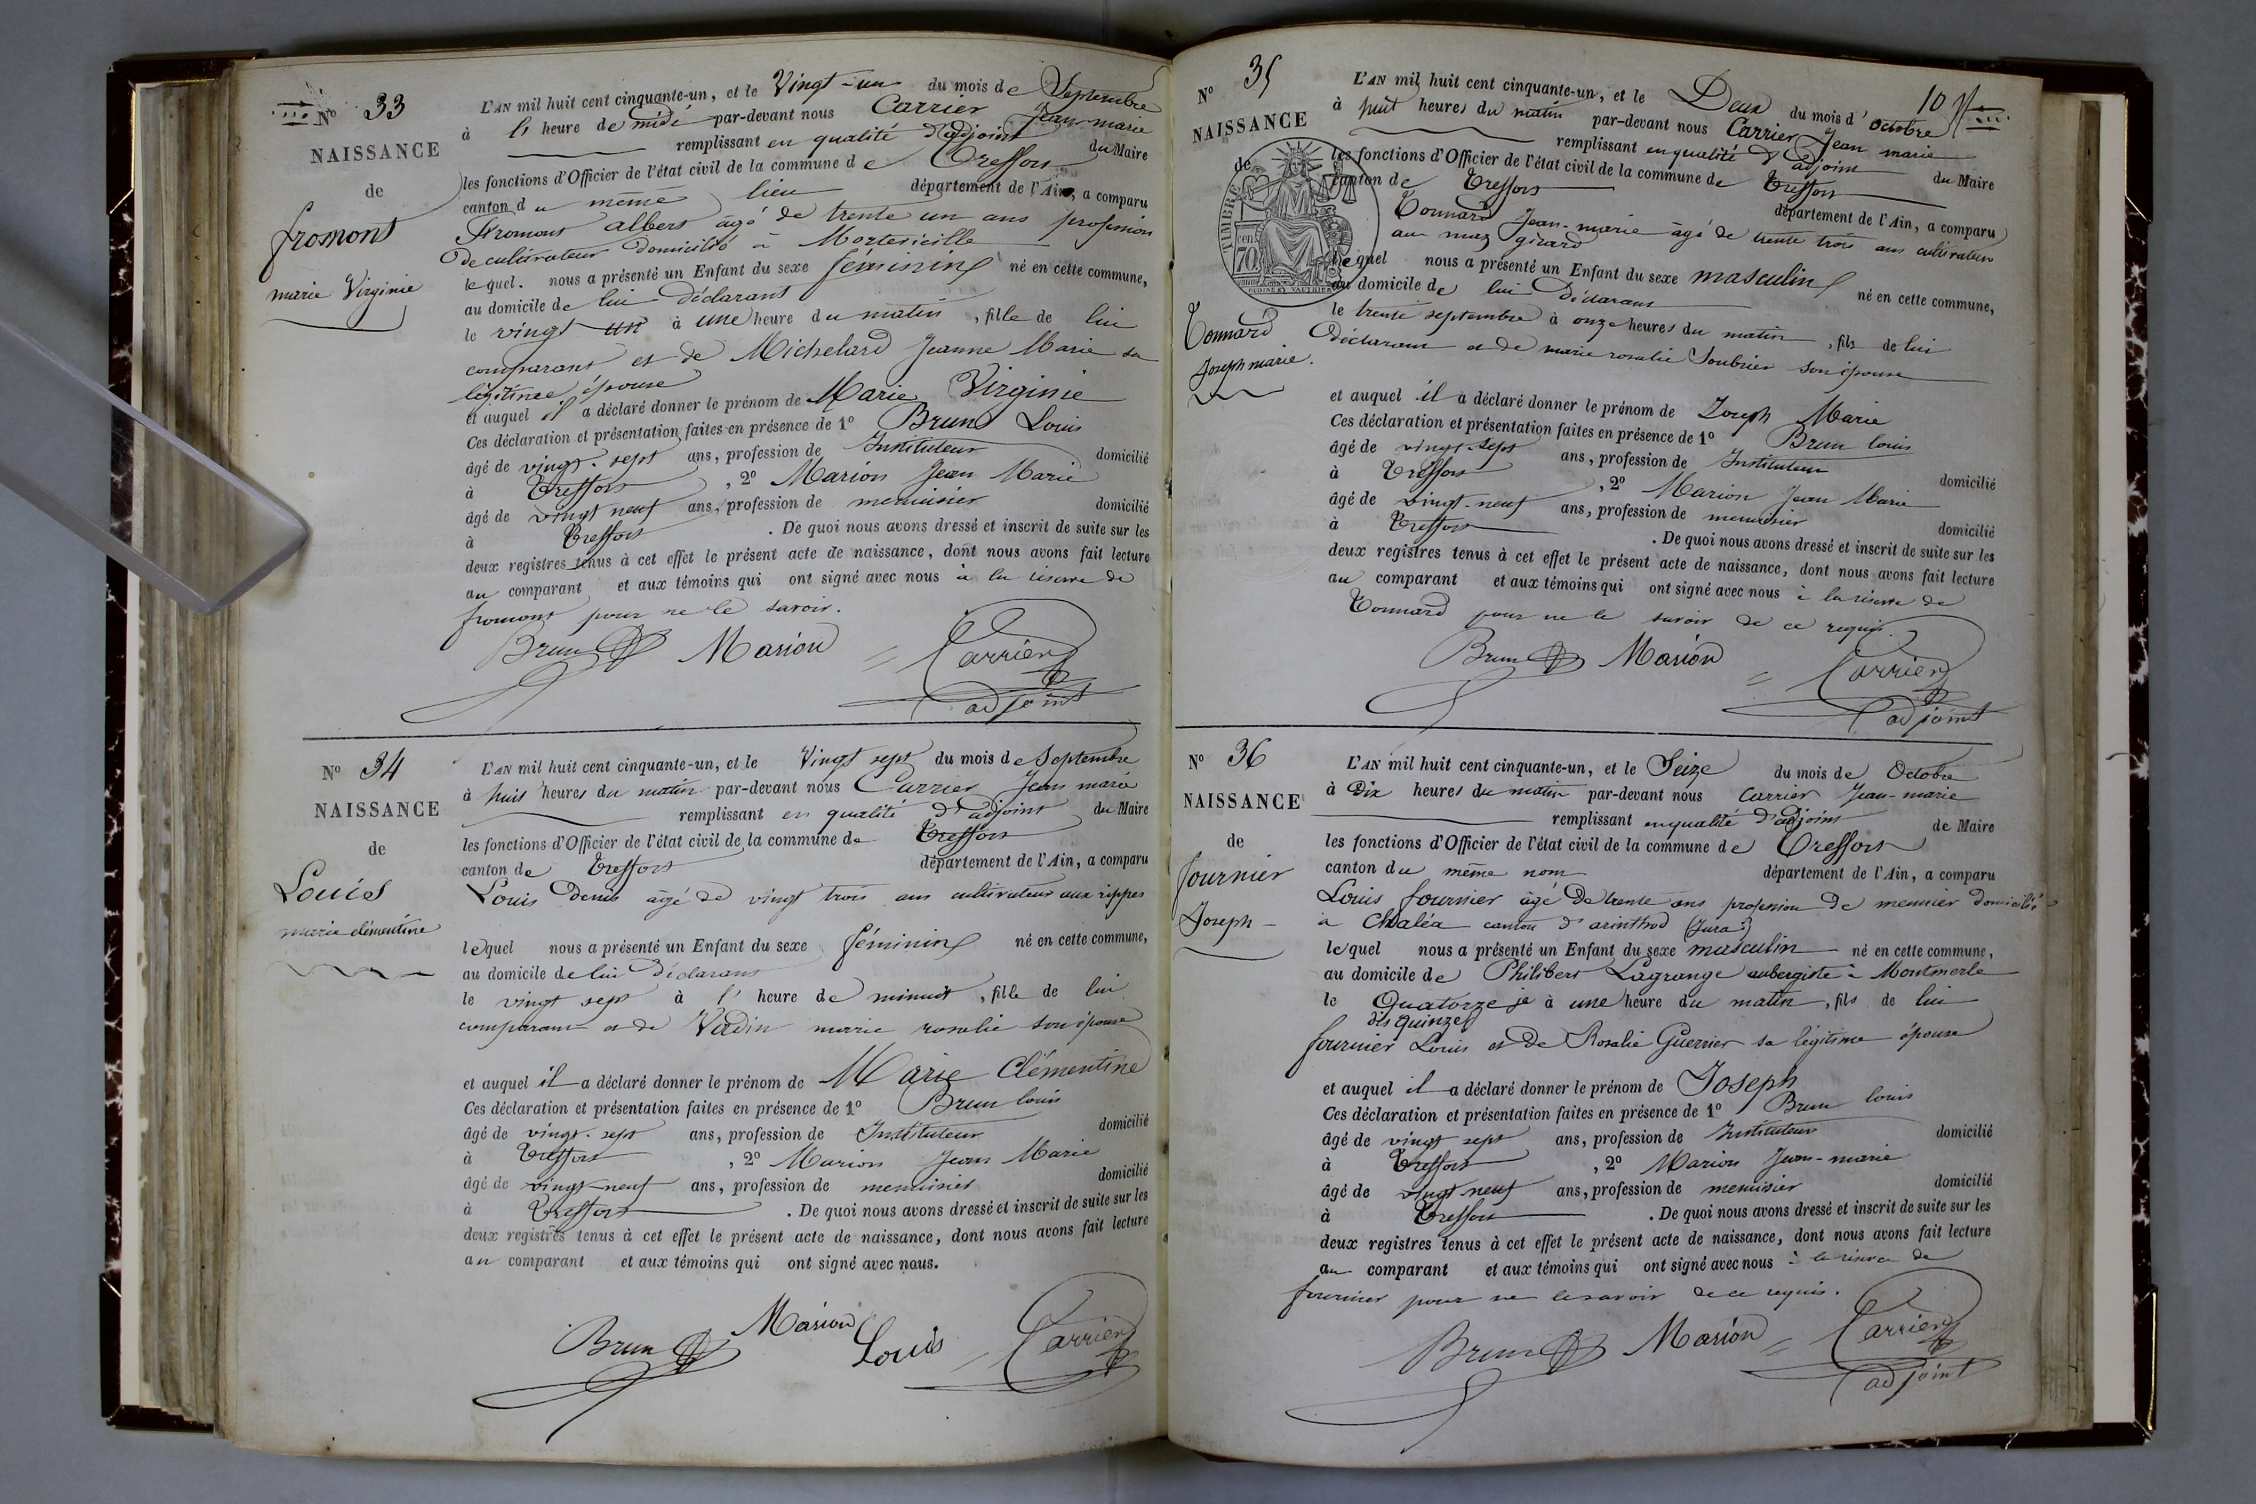 N° 33
NAISSANCE
de
fromont
marie Virginie
L'AN mil huit cent cinquante-un, et le Vingt-un du mois de Septembre
à l' heure de midi par-devant nous Carrier Jean-marie
remplissant en qualité d'adjoint du Maire
les fonctions d'Officier de l'état civil de la commune de Treffort
canton du même lieu département de l'Ain, a comparu
Fromont albert âgé de trente un ans profession
de cultivateur domicilié à
lequel. nous a présenté un Enfant du sexe féminin né en cette commune,
au domicile de lui déclarant
le vingt un à une heure du matin, fille de lui
comparant et de Michelard Jeanne Marie sa
légitime épouse
et auquel il a déclaré donner le prénom de Marie Virginie
Ces déclaration et présentation faites en présence de 1° Brun Louis
âgé de vingt-sept ans, profession de Instituteur domicilié
à Treffort, 2° Marion Jean Marie
âgé de vingt neuf ans, profession de menuisier domicilié
à Treffort. De quoi nous avons dressé et inscrit de suite sur les
deux registres tenus à cet effet le présent acte de naissance, dont nous avons fait lecture
au comparant et aux témoins qui ont signé avec nous à la réserve de
fromont pour ne le savoir.
Brun Marion Carrier
adjoint
N° 34
NAISSANCE
de
Louis
marie clémentine
L'AN mil huit cent cinquante-un, et le Vingt sept du mois de Septembre
à huit heures du matin par-devant nous Carrier Jean marie
remplissant en qualité d'adjoint du Maire
les fonctions d'Officier de l'état civil de la commune de Treffort
canton de Treffort département de l'Ain, a comparu
Louis Denis âgé de vingt trois ans cultivateur aux rippes
lequel nous a présenté un Enfant du sexe féminin né en cette commune,
au domicile de lui déclarant
le vingt sept à l' heure de minuit, fille de lui
comparant et de Vadin marie rosalie son épouse
et auquel il a déclaré donner le prénom de Marie Clémentine
Ces déclaration et présentation faites en présence de 1° Brun louis
âgé de vingt-sept ans, profession de Instituteur domicilié
à Treffort, 2° Marion Jean Marie
âgé de vingt-neuf ans, profession de menuisier domicilié
à Treffort. De quoi nous avons dressé et inscrit de suite sur les
deux registres tenus à cet effet le présent acte de naissance, dont nous avons fait lecture
au comparant et aux témoins qui ont signé avec nous.
Brun Marion Louis Carrier
10
N° 35
NAISSANCE
de
TIMBRE
70
cen
Tonnard
Joseph marie.
L'AN mil huit cent cinquante-un, et le Deux du mois d'octobre
à huit heures du matin par-devant nous Carrier Jean marie
remplissant en qualité d'adjoint du Maire
les fonctions d'Officier de l'état civil de la commune de Treffort
canton de Treffort département de l'Ain, a comparu
Tonnard Jean-marie âgé de trente trois ans cultivateur
au maz girard
lequel nous a présenté un Enfant du sexe masculin né en cette commune,
au domicile de lui déclarant
le trente septembre à onze heures du matin, fils de lui
déclarant et de marie rosalie Soubrier son épouse
et auquel il a déclaré donner le prénom de Joseph Marie
Ces déclaration et présentation faites en présence de 1° Brun louis
âgé de vingt-sept ans, profession de Instituteur domicilié
à Treffort, 2° Marion Jean Marie
âgé de vingt-neuf ans, profession de menuisier domicilié
à Treffort. De quoi nous avons dressé et inscrit de suite sur les
deux registres tenus à cet effet le présent acte de naissance, dont nous avons fait lecture
au comparant et aux témoins qui ont signé avec nous à la réserve de
Tonnard pour ne le savoir de ce requis.
Brun Marion Carrier
adjoint
N° 36
NAISSANCE
de
fournier
Joseph
L'AN mil huit cent cinquante-un, et le Seize du mois de Octobre
à Dix heures du matin par-devant nous Carrier Jean-marie
remplissant en qualité d'adjoint de Maire
les fonctions d'Officier de l'état civil de la commune de Treffort
canton du même nom département de l'Ain, a comparu
Louis fournier âgé de trente ans profession de meunier domicilié
à Chaléa canton d'arinthod (Jura)
lequel nous a présenté un Enfant du sexe masculin né en cette commune,
au domicile de Philibert Lagrange aubergiste à Montmerle
le Quatorze à une heure du matin, fils de lui
dis quinze
fournier Louis et de Rosalie Guerrier sa légitime épouse
et auquel il a déclaré donner le prénom de Joseph
Ces déclaration et présentation faites en présence de 1° Brun louis
âgé de vingt sept ans, profession de Instituteur domicilié
à Treffort, 2° Marion Jean-marie
âgé de vingt-neuf ans, profession de menuisier domicilié
à Treffort. De quoi nous avons dressé et inscrit de suite sur les
deux registres tenus à cet effet le présent acte de naissance, dont nous avons fait lecture
au comparant et aux témoins qui ont signé avec nous à la réserve de
fournier pour ne le savoir de ce requis.
Brun Marion Carrier
adjoint